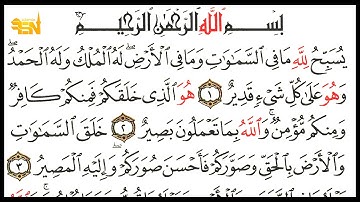 بِسْمِ ٱللَّهِ ٱلرَّحْمَٰنِ ٱلرَّحِيمِ
يُسَبِّحُ لِلَّهِ مَا فِى ٱلسَّمَٰوَٰتِ وَمَا فِى ٱلْأَرْضِۖ لَهُ ٱلْمُلْكُ وَلَهُ ٱلْحَمْدُۖ
وَهُوَ عَلَىٰ كُلِّ شَىْءٍ قَدِيرٌ ١ هُوَ ٱلَّذِى خَلَقَكُمْ فَمِنكُمْ كَافِرٌ
وَمِنكُم مُّؤْمِنٌۚ وَٱللَّهُ بِمَا تَعْمَلُونَ بَصِيرٌ ٢ خَلَقَ ٱلسَّمَٰوَٰتِ
وَٱلْأَرْضَ بِٱلْحَقِّ وَصَوَّرَكُمْ فَأَحْسَنَ صُوَرَكُمْۖ وَإِلَيْهِ ٱلْمَصِيرُ ٣